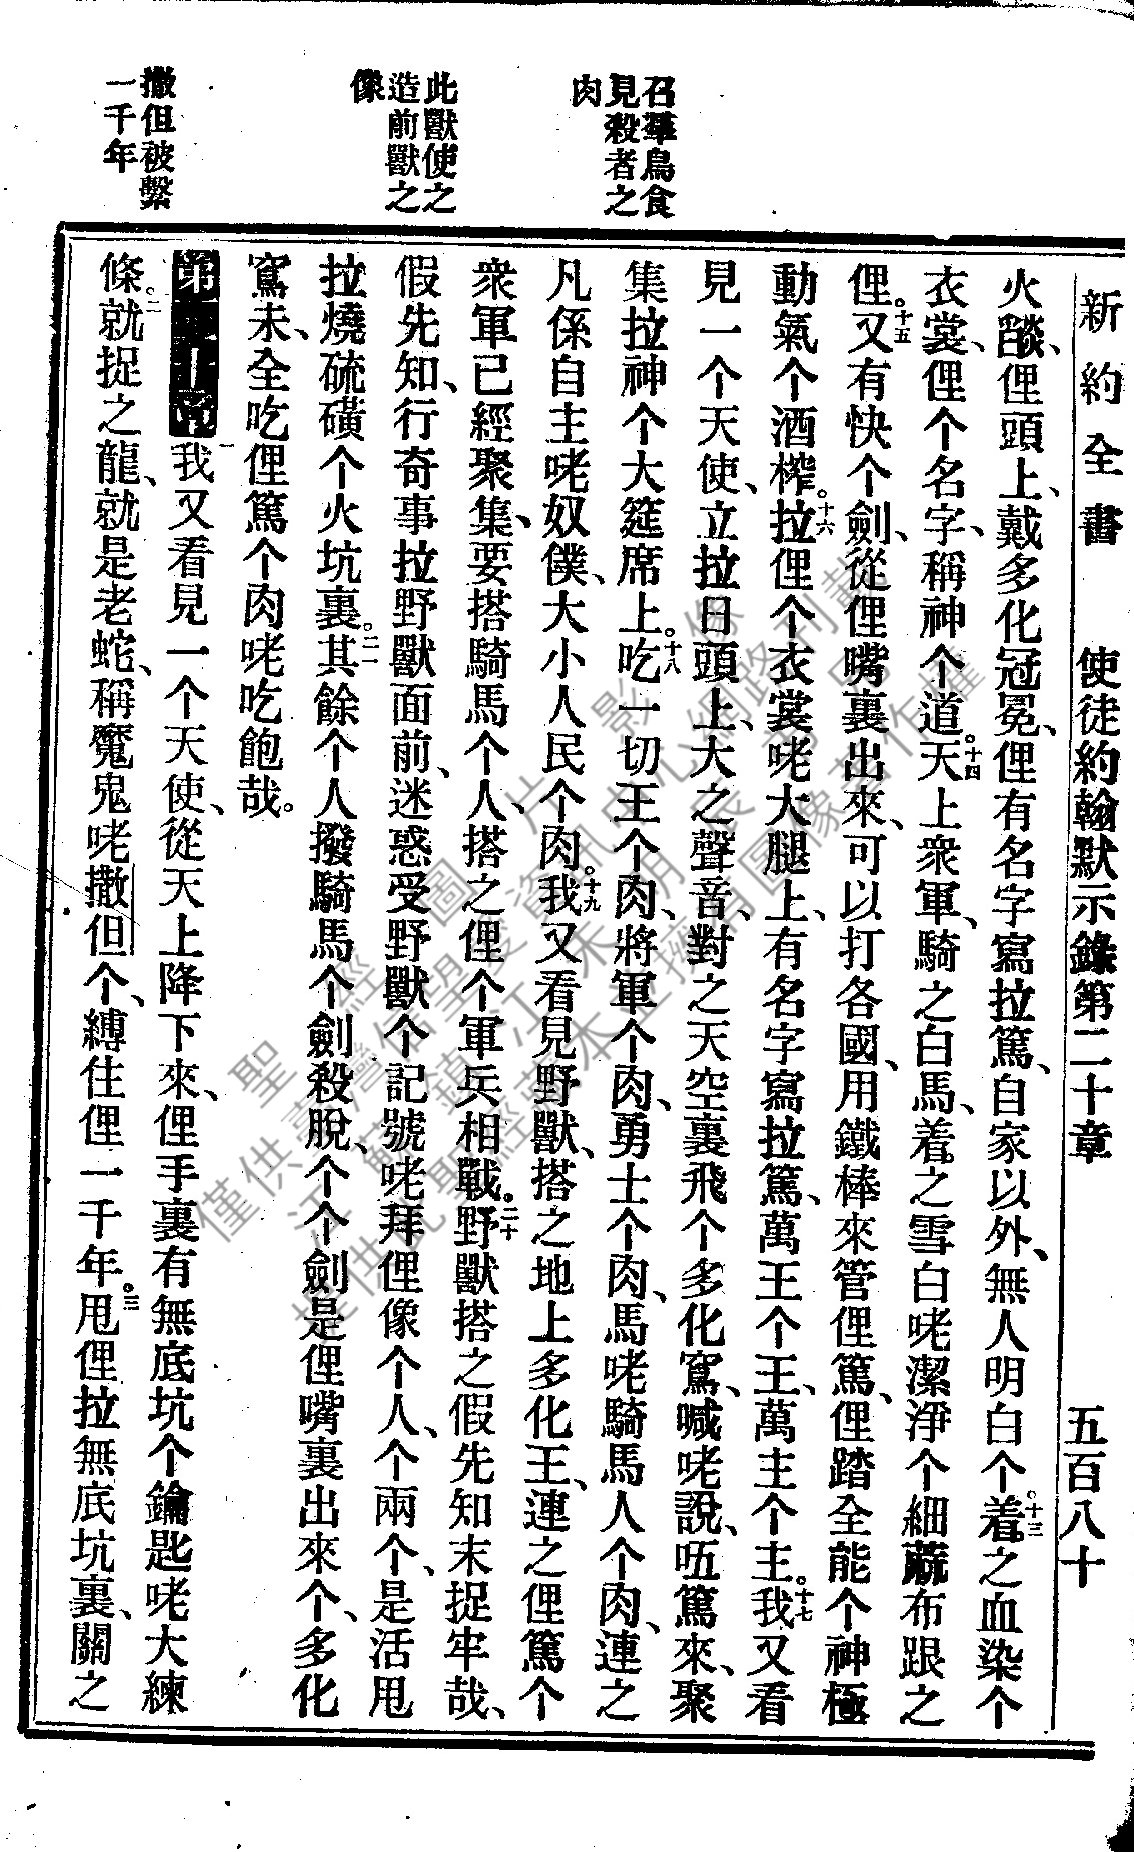 新約全書 使徒約翰默示錄第二十章 五百八十
召羣鳥食
見殺者之
肉
此獸使之
造前獸之
像
撒但被繫
一千年
火燄、俚頭上、戴多化冠冕、俚有名字寫拉篤、自家以外、無人明白个。十三着之血染个
衣裳、俚个名字、稱神个道。十四天上衆軍、騎之白馬、着之雪白咾潔淨个細蔴布跟之
俚。十五又有快个劍、從俚嘴裏出來、可以打各國、用鐵棒來管俚篤、俚踏全能个神極
動氣个酒榨。十六拉俚个衣裳咾大腿上、有名字寫拉篤、萬王个王、萬主个主。十七我又看
見一个天使、立拉日頭上、大之聲音、對之天空裏飛个多化窵、喊咾說、㕶篤來、聚
集拉神个大筵席上。十八吃一切王个肉、將軍个肉、勇士个肉、馬咾騎馬人个肉、連之
凡係自主咾奴僕、大小人民个肉。十九我又看見野獸、搭之地上多化王、連之俚篤个
衆軍已經聚集、要搭騎馬个人、搭之俚个軍兵相戰。二十野獸搭之假先知末捉牢哉、
假先知、行奇事拉野獸面前、迷惑受野獸个記號咾拜俚像个人、个兩个、是活甩
拉燒硫磺个火坑裏。二一其餘个人撥騎馬个劍殺脫、个个劍是俚嘴裏出來个、多化
窵末、全吃俚篤个肉咾吃飽哉。
第二十章 一我又看見一个天使、從天上降下來、俚手裏有無底坑个鑰匙咾大練
條。二就捉之龍、就是老蛇、稱魔鬼咾撒但个、縛住俚一千年。三甩俚拉無底坑裏、關之
聖經圖片影像
僅供臺灣信望愛資訊中心網路刊載
江蘇鎮江朱明辰弟兄
提供此聖經藏本並擁有圖像著作權